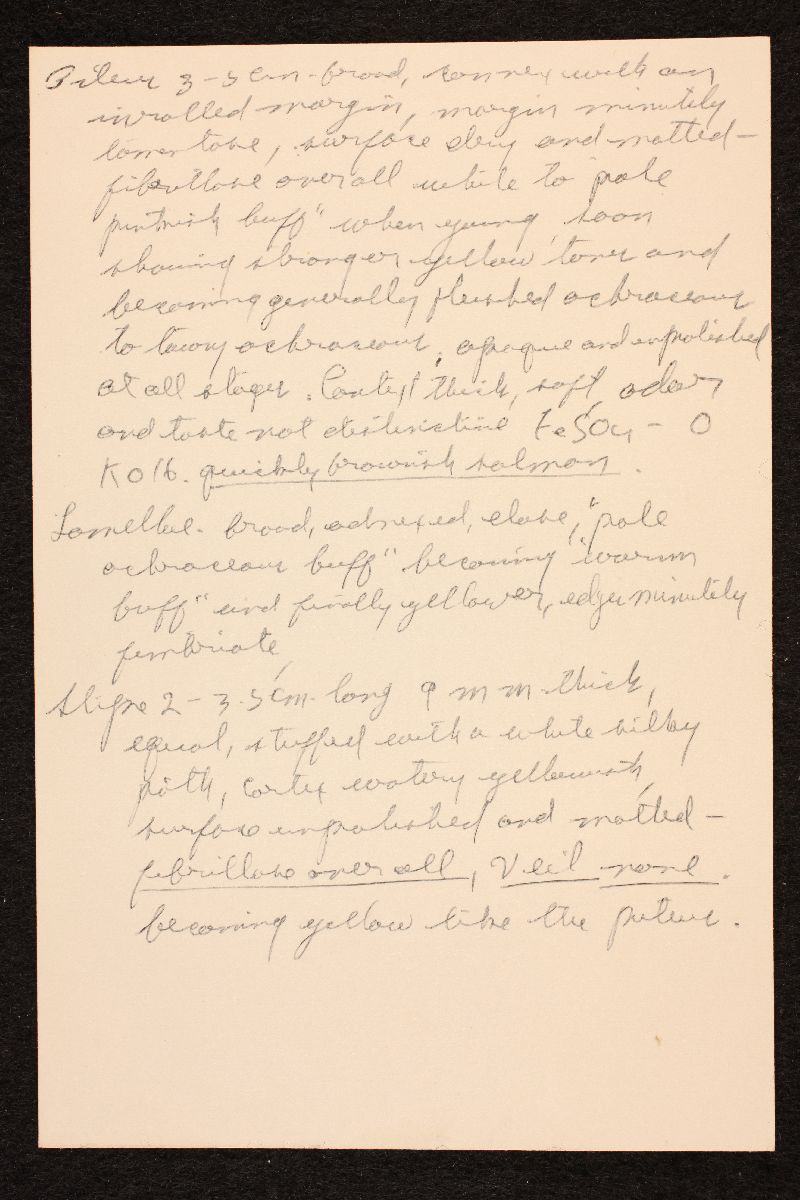 Pileus 3-5 cm broad, convex with an
inrolled margin, margin minutely
tomentose, surface dry and matted-
fibrillose overall white to "pale
pinkish buff" when young, soon
showing stronger yellow tones and
becoming generally flushed ochraceous
to tawny ochraceous, opaque and unpolished
at all stages. Context thick, soft, odor
and taste not distinctive FeSO4 - O
KOH. quickly brownish salmon.
Lamellae broad, adnexed, close, "pale
ochraceous buff" becoming "warm
buff" and finally yellower, edges minutely
fimbriate
Stipe 2-3.5 cm long 9 mm thick,
equal, stuffed with a white silky
pith, cortex watery yellowish,
surface unpolished and matted-
fibrillose over all, Veil none.
becoming yellow like the pileus.